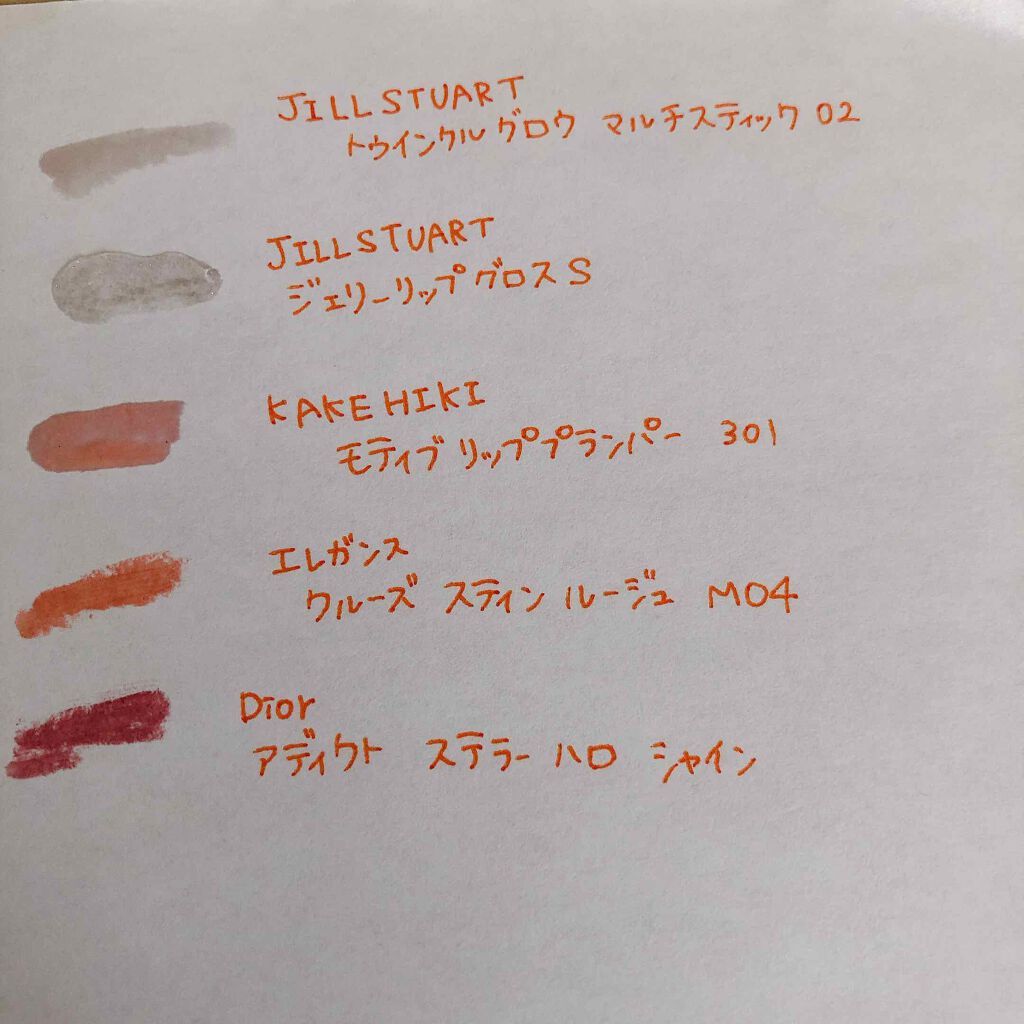 JILL STUART
トゥインクル グロウ マルチスティック 02
JILL STUART
ジェリーリップ グロス S
KAKEHIKI
モティブ リッププランパー 301
エレガンス
クルーズ スティン ルージュ M04
Dior
アディクト ステラー ハロ シャイン